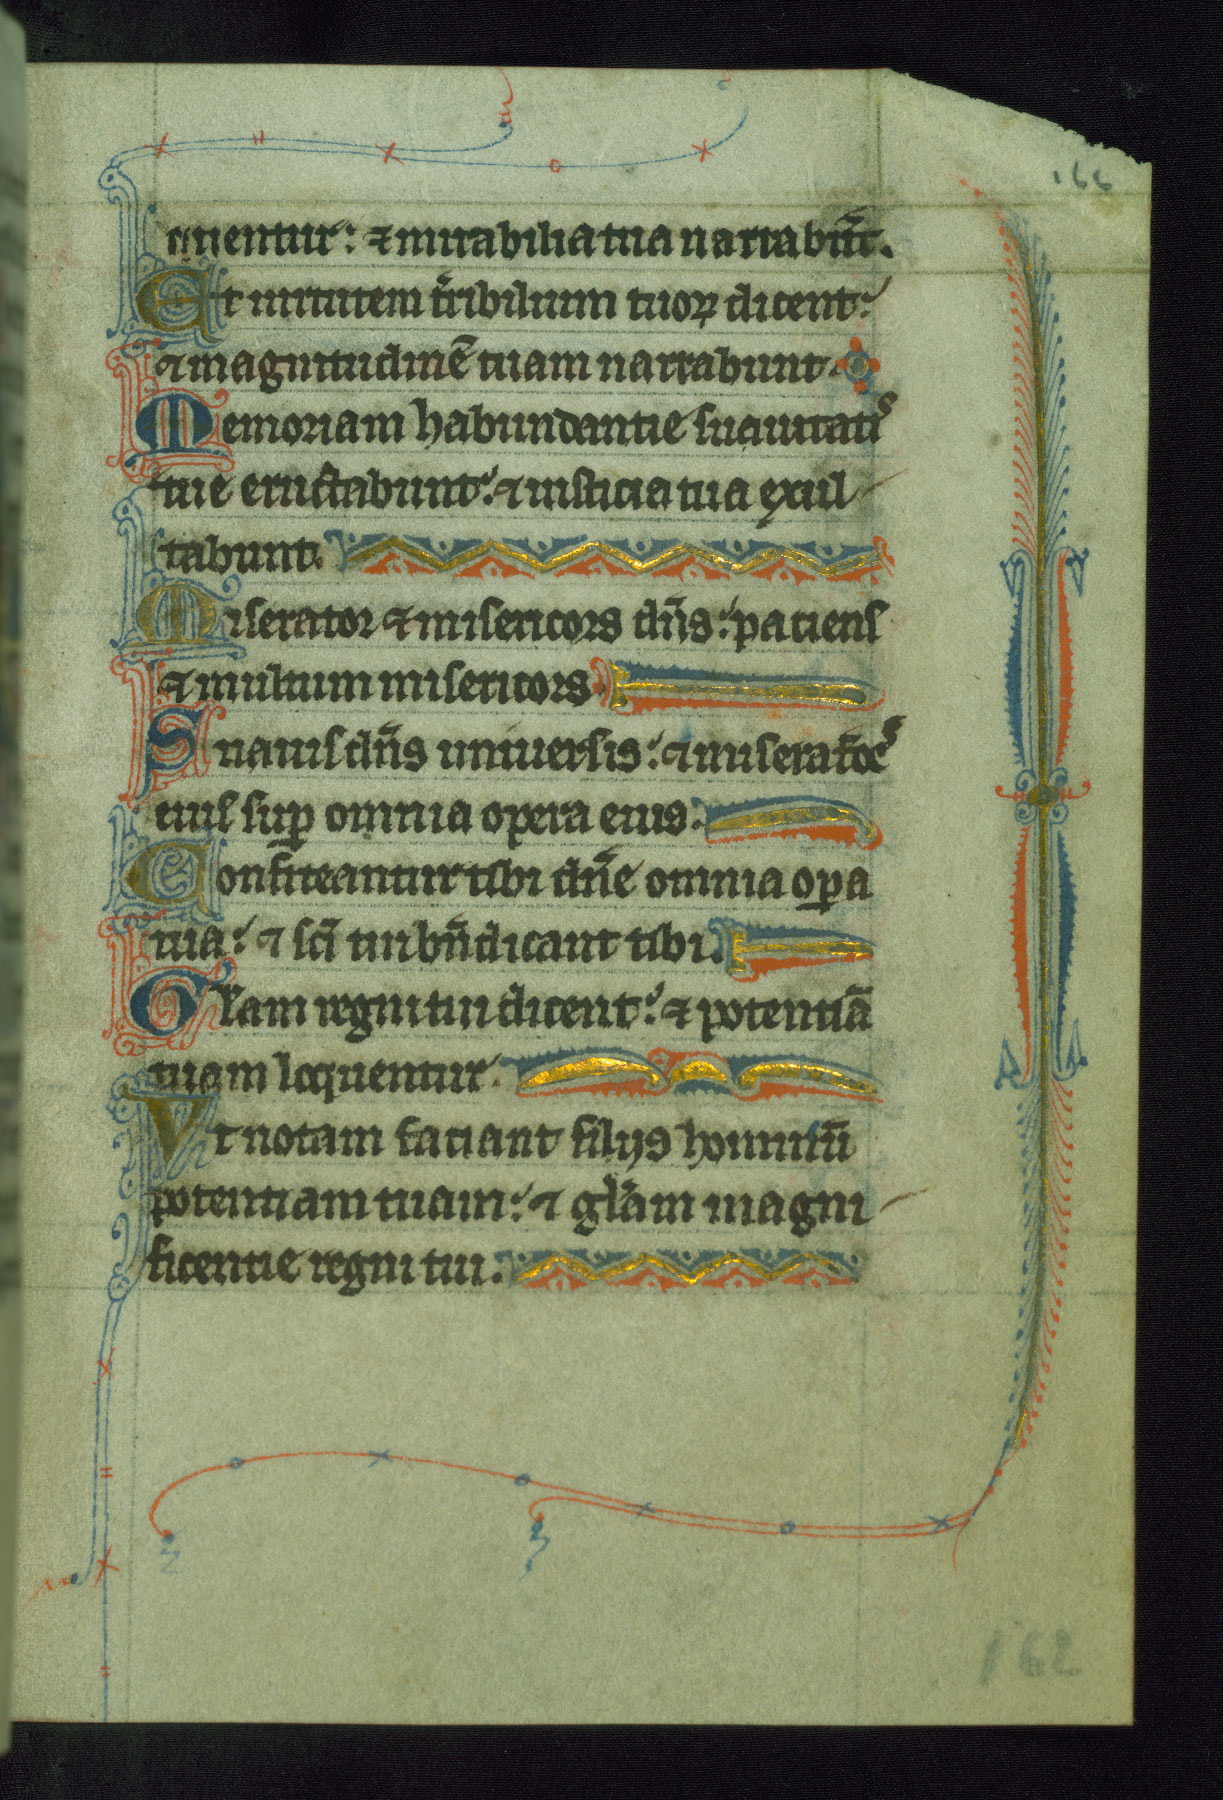 166
quentur: ⁊ mirabilia tua narrabūt.
Et uirtutem t̄ribilium tuoꝝ dicent:
⁊ magnitudinē tuam narrabunt.
Memoriam habundantie suauitatꝭ
tue eructabunt: ⁊ iusticia tua exul
tabunt.
Miserator ⁊ misericors dn̄s: paciens
⁊ multum misericors.
Suauis dn̄s uniuersis: ⁊ miserat̄oēs
eius suꝑ omnia opera eius.
Confiteantur tibi dn̄e omnia oꝑa
tua: ⁊ sc̄i tui bn̄dicant tibi.
Gl̄am regni tui dicent: ⁊ potentiā
tuam loquentur.
Vt notam faciant filijs hominū
potentiam tuam: ⁊ gl̄am magni
ficentie regni tui.
162